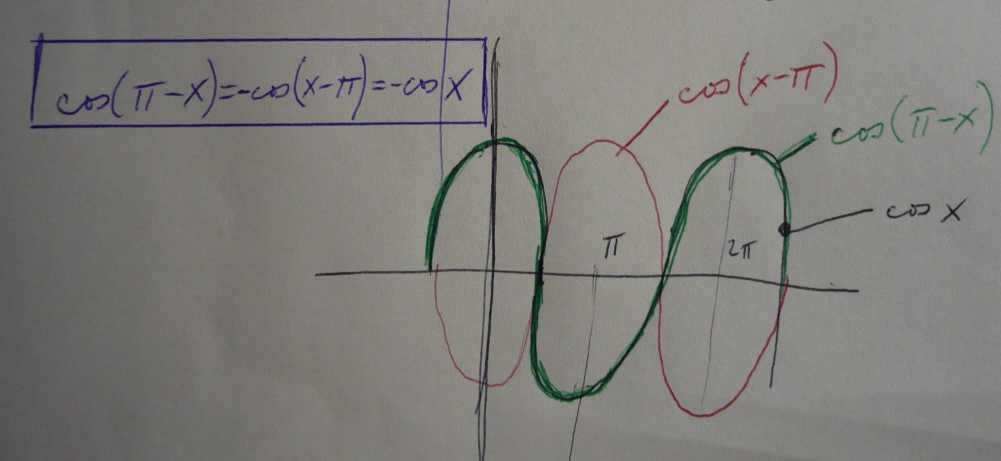 cos(π-x)=-cos(x-π)=-cos x
cos(x-π)
cos(π-x)
cos x
π
2π